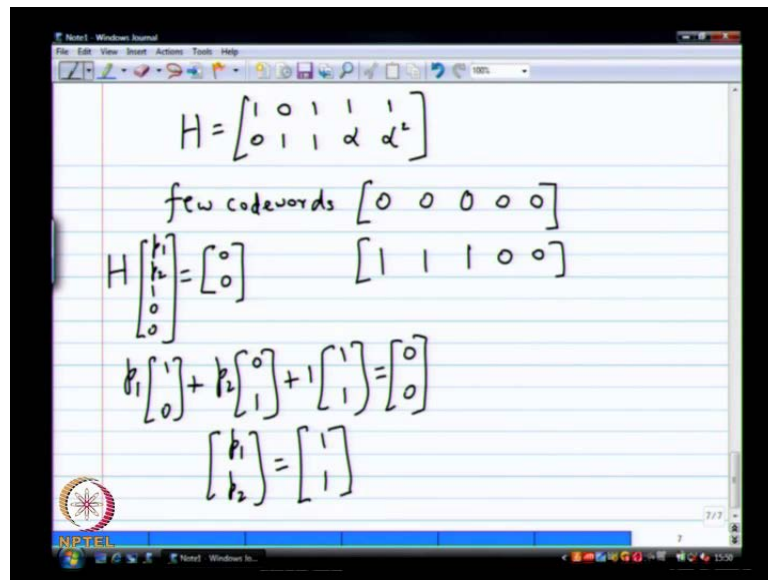 Note1 - Windows Journal
File Edit View Insert Actions Tools Help
100%
H = [1 0 1 1 1
0 1 1 α α²]
few codewords [0 0 0 0 0]
H [p₁ p₂ 1 0 0] = [0 0]
[1 1 1 0 0]
p₁ [1 0] + p₂ [0 1] + 1 [1 1] = [0 0]
[p₁ p₂] = [1 1]
7/7
7
NPTEL
Note1 - Windows Jo...
15:50